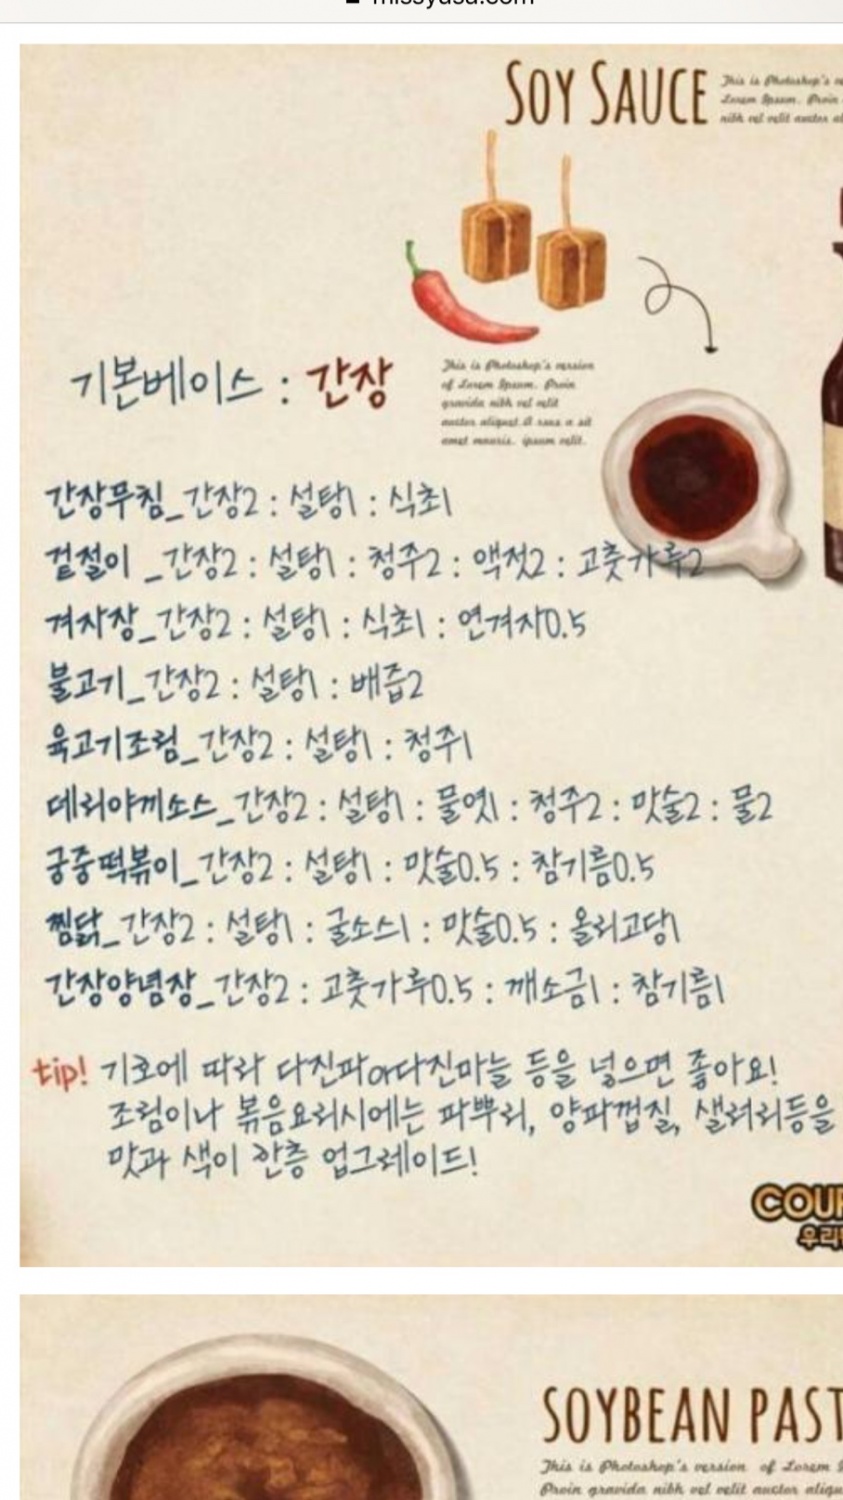 missyusa.com
SOY SAUCE
This is Photoshop's
Lorem Ipsum. Proin
nibh vel velit auctor
기본베이스 : 간장
This is Photoshop's version
of Lorem Ipsum. Proin
gravida nibh vel velit
auctor aliquet. A sit
amet mauris. ipsum velit.
간장무침_간장2 : 설탕1 : 식초1
겉절이_간장2 : 설탕1 : 청주2 : 액젓2 : 고춧가루2
겨자장_간장2 : 설탕1 : 식초1 : 연겨자0.5
불고기_간장2 : 설탕1 : 배즙2
육고기조림_간장2 : 설탕1 : 청주1
데리야끼소스_간장2 : 설탕1 : 물엿1 : 청주2 : 맛술2 : 물2
궁중떡볶이_간장2 : 설탕1 : 맛술0.5 : 참기름0.5
찜닭_간장2 : 설탕1 : 굴소스1 : 맛술0.5 : 올리고당1
간장양념장_간장2 : 고춧가루0.5 : 깨소금1 : 참기름1
tip! 기호에 따라 다진파or다진마늘 등을 넣으면 좋아요!
조림이나 볶음요리시에는 파뿌리, 양파껍질, 샐러리등을
맛과 색이 한층 업그레이드!
COU
우리
SOYBEAN PAST
This is Photoshop's version of Lorem
Proin gravida nibh vel velit auctor